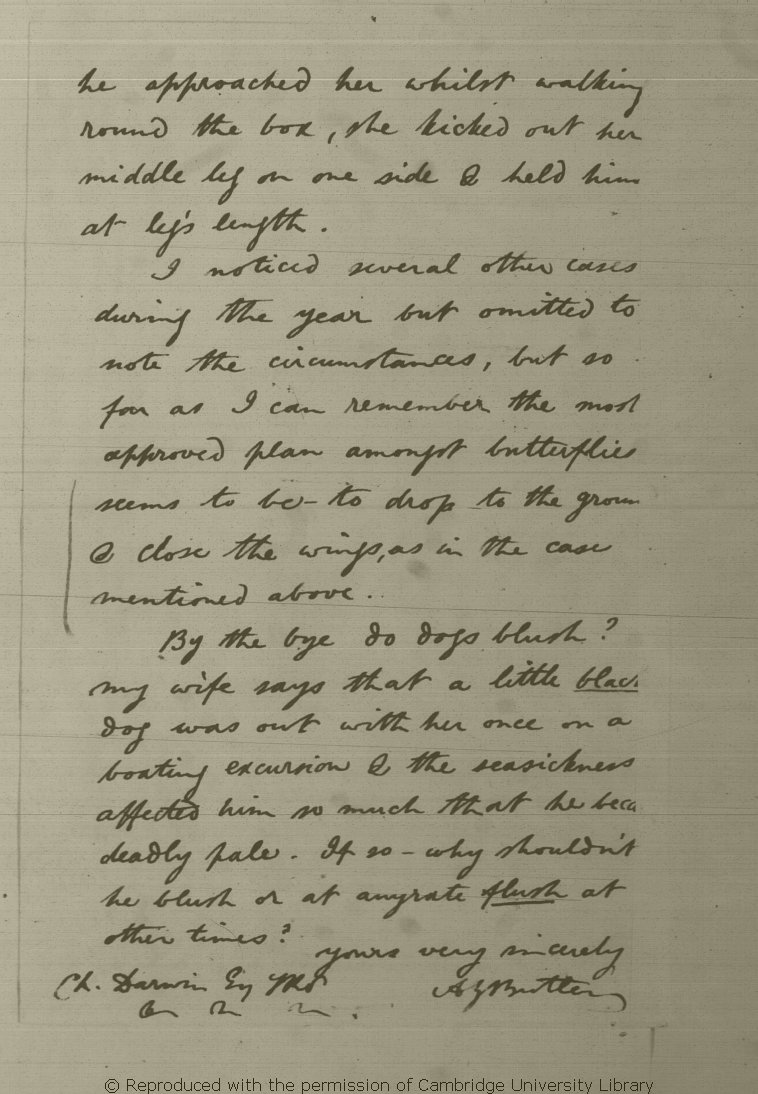 he approached her whilst walking
round the box, she kicked out her
middle leg on one side & held him
at leg's length.
I noticed several other cases
during the year but omitted to
note the circumstances, but so
far as I can remember the most
approved plan amongst butterflies
seems to be - to drop to the groun
& close the wings, as in the case
mentioned above.
By the bye do dogs blush?
my wife says that a little blac
dog was out with her once on a
boating excursion & the seasickness
affected him so much that he beca
deadly pale. If so - why shouldn't
he blush or at anyrate flush at
other times?
yours very sincerely
Ch. Darwin Esq
A G Butler
© Reproduced with the permission of Cambridge University Library